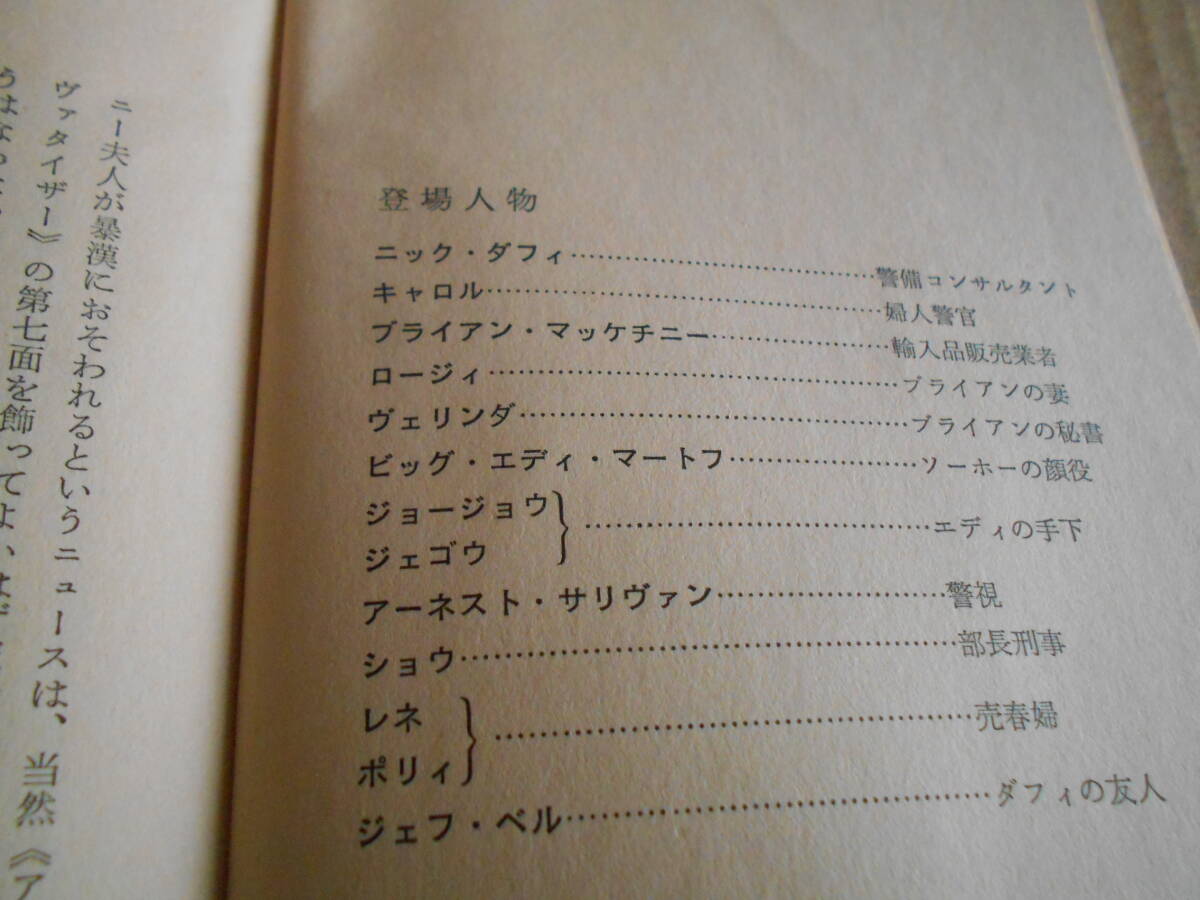 登場人物
ニック・ダフィ……………………………警備コンサルタント
キャロル……………………………………婦人警官
ブライアン・マッケチニー………………輸入品販売業者
ロージィ……………………………………ブライアンの妻
ヴェリンダ…………………………………ブライアンの秘書
ビッグ・エディ・マートフ………………ソーホーの顔役
ジョージョウ
ジェゴウ
}……………………………エディの手下
アーネスト・サリヴァン…………………警視
ショウ………………………………………部長刑事
レネ
ポリィ
}……………………………………売春婦
ジェフ・ベル………………………………ダフィの友人
ニー夫人が暴漢におそわれるというニュースは、当然《ア
ヴァタイザー》の第七面を飾ってよ、はず
うはなっ